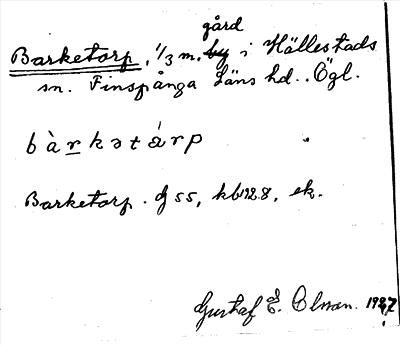 gård
Barketorp, 1/3 m. by i Hällestads
sn. Finspånga Läns hd. Ögl.
b à r k ə t á r p
Barketorp. dj 55, kb 12.8, ek.
Gustaf E. Olsson. 1927